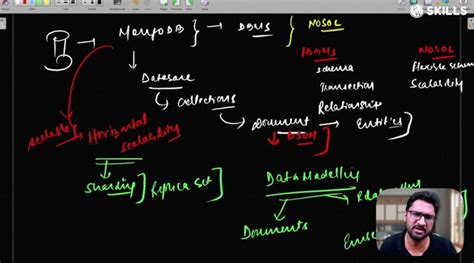 SKILLS
MongoDB } → DBMS } NOSQL
RDBMS
NOSQL
Schema
Flexible schem
Transaction
Scalability
Relationship
Database
Collections
Document → Entities }
BSON ]
scalable
Horizontal
scalability
Sharding ] Replica Set ]
Data Modelling
Documents